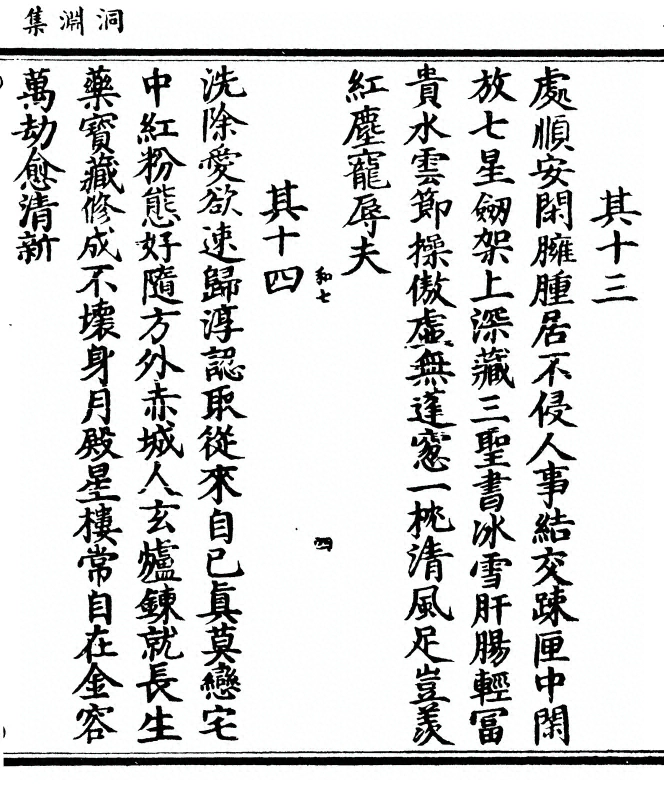 洞淵集
其十三
處順安閑臃腫居不侵人事結交踈匣中閑
放七星劒架上深藏三聖書冰雪肝腸輕冨
貴水雲節操傲虛無蓬窓一枕清風足豈羨
紅塵寵辱夫
和七
四
其十四
洗除愛欲速歸淳認取從來自已眞莫戀宅
中紅粉態好隨方外赤城人玄爐鍊就長生
藥寳藏修成不壞身月殿星樓常自在金容
萬劫愈清新